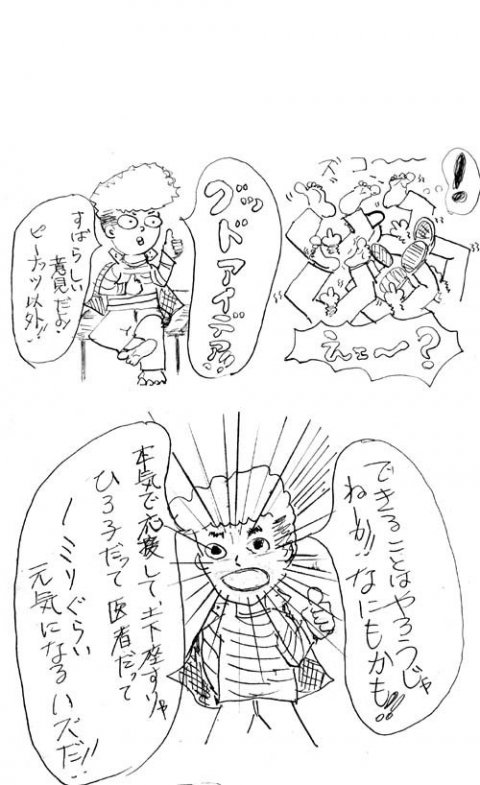 ！
ズコ〜〜
えェ〜〜？
グッド
アイデア!!
すばらしい
意見だな
ピーナッツ以外!!
できることはやろうじゃ
ねーか!!なにもかも!!!
本気で応援して、土下座すりゃ
ひろ子だって医者だって
1ミリぐらい
元気になるハズだ!!